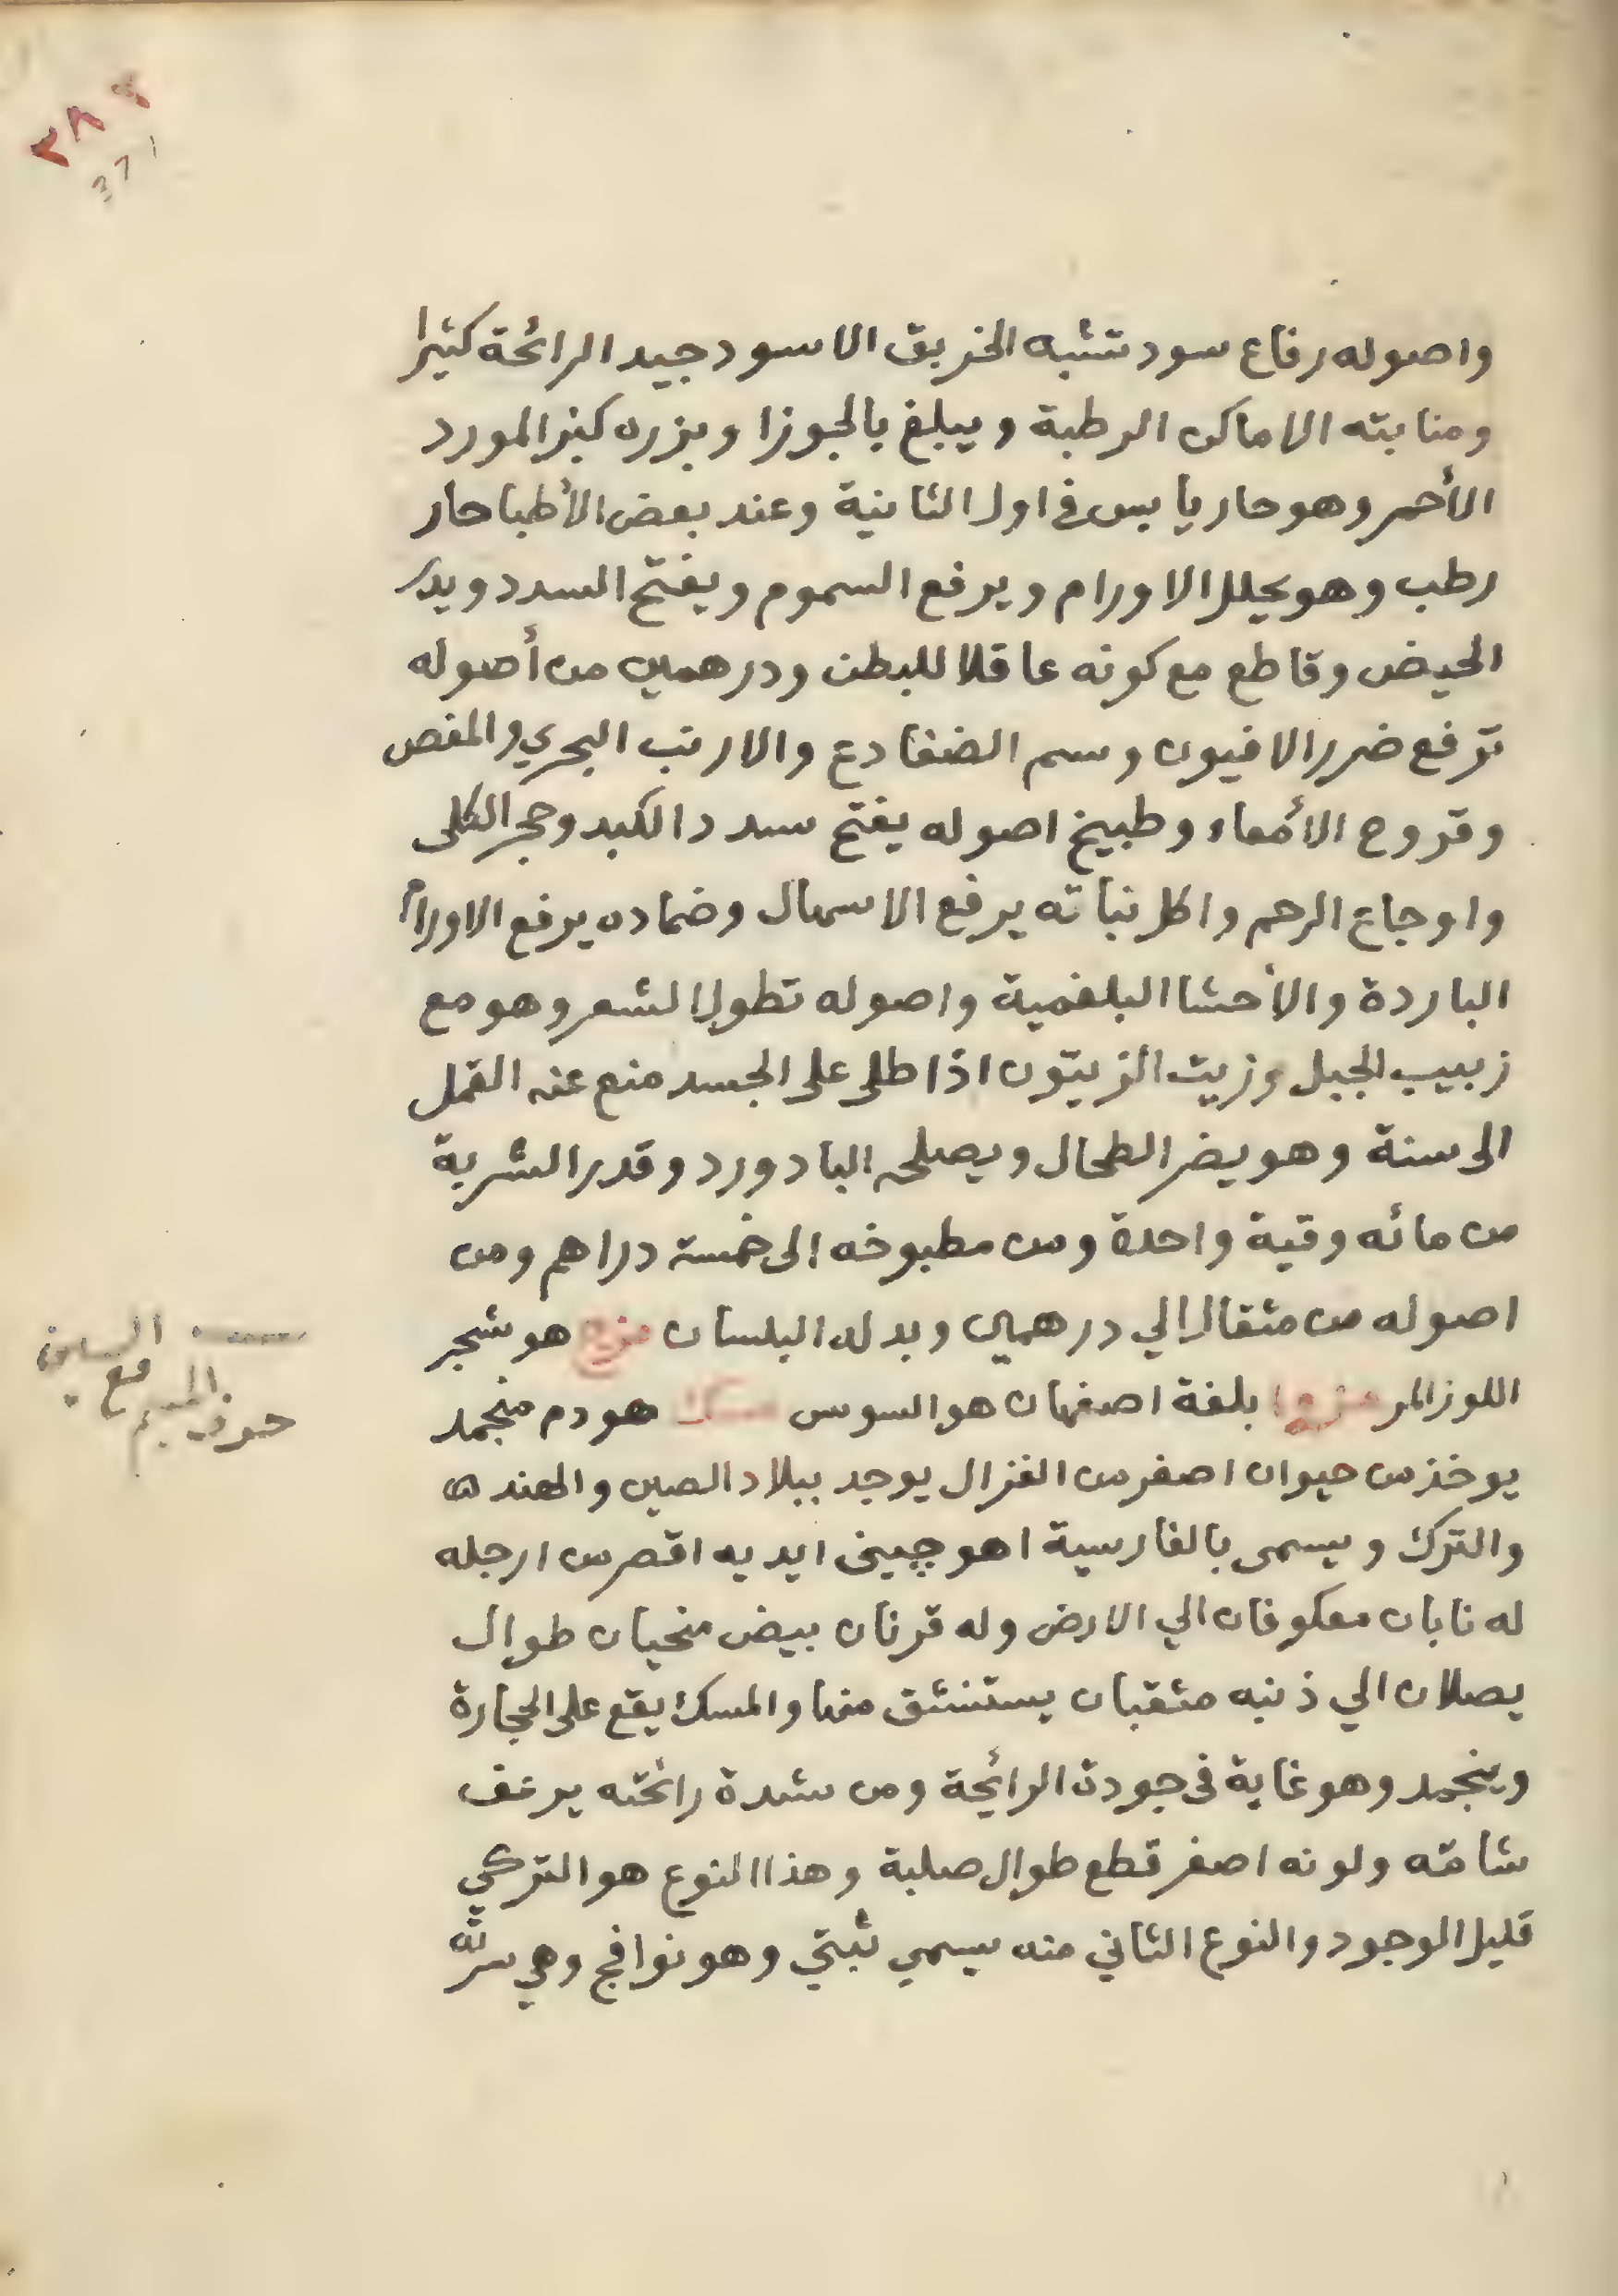 ٣٨٩
371
واصوله رفاع سود تشبه الخربق الاسود جيد الرائحة كثيرا
ومنابته الاماكن الرطبة ويبلغ بالجوزا وبزره كبزر المورد
الأحمر وهو حار يابس في اول الثانية وعند بعض الأطبا حار
رطب وهو يحلل الاورام ويرفع السموم ويفتح السدد ويدر
الحيض وقاطع مع كونه عاقلا للبطن ودرهمين من أصوله
ترفع ضرر الافيون وسم الضفادع والارنب البحري والمغص
وقروح الأمعاء وطبيخ اصوله يفتح سدد الكبد وحجر الكلى
واوجاع الرحم واكل نباته يرفع الاسهال وضماده يرفع الاورام
الباردة والأحشا البلغمية واصوله تطول الشعر وهو مع
زبيب الجبل وزيت الزيتون اذا طلى على الجسد منع عنه القمل
الى سنة وهو يضر الطحال ويصلحه البادورد وقدر الشربة
من مائه وقية واحدة ومن مطبوخه الى خمسة دراهم ومن
اصوله من مثقال الي درهمين وبدله البلسان مزج هو شجر
اللوز المر بلغة اصفهان هو السوس مسك هو دم منجمد
يوخذ من حيوان اصغر من الغزال يوجد ببلاد الصين والهند
والترك ويسمى بالفارسية اهو چينى ايديه اقصر من ارجله
له نابان معكوفان الي الارض وله قرنان بيض منحيان طوال
يصلان الي ذنبه مثقبان يستنشق منها والمسك يقع على الحجارة
وينجمد وهو غاية في جودة الرائحة ومن شدة رائحته يرعف
شامته ولونه اصفر قطع طوال صلبة وهذا النوع هو التركي
قليل الوجود والنوع الثاني منه يسمي تبتي وهو نوافج وهي سرته
السين
مع الميم
حرف الميم